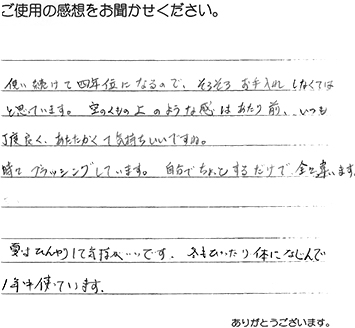 ご使用の感想をお聞かせください。
使い続けて四年位になるので、そろそろお手入れしなくては
と思ています。空のくもの上のような感はあたり前、いつも
丁度良く、あたたかくて気持ちいいですね。
時々ブラッシングしています。自分でちょっとするだけで全々違います。
夏はひんやりして気持いいです。冬もぴったり体になじんで
1年中使ています。
ありがとうございます。